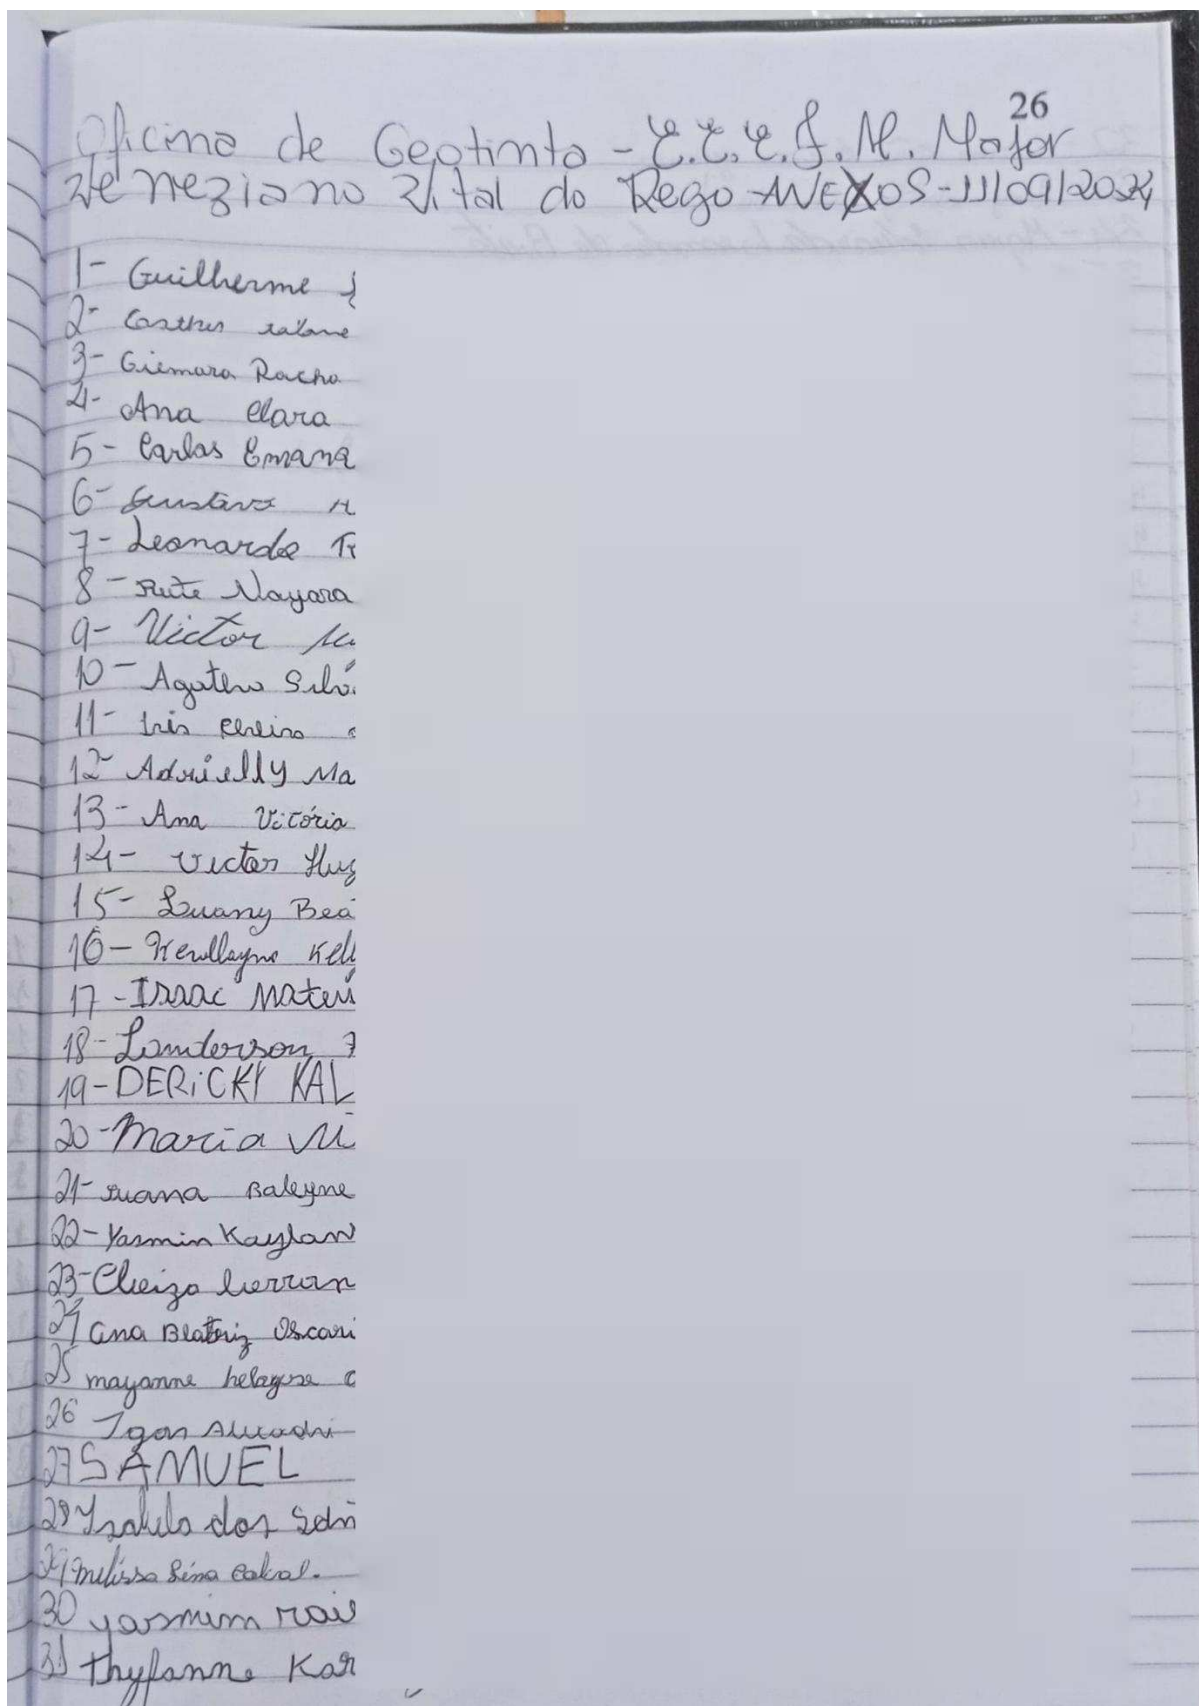 26
Oficina de Geotinta - E.E.E.F.M. Major
Veneziano Vital do Rego - ANEXOS - 11/09/2024
1- Guilherme
2-
3- Giemara Racho
4- Ana Clara
5- Carlos Emana
6- Gustavo H
7- Leonardo
8- Rute Nayara
9- Victor
10- Agatha Silv
11- Iris
12- Adrielly Ma
13- Ana Vitória
14- Victor Hug
15- Luany Bea
16- Kell
17- Isaac Mateu
18- Landerson
19- DERICKY KAL
20- Maria Vi
21- Ruana
22- Yasmin Kaylan
23-
24 Ana Beatriz Oscari
25 mayanne
26 Igor
27 SAMUEL
28 dos San
29 Melissa Lima Cabral.
30 yasmim rai
31 thyfanne Kar